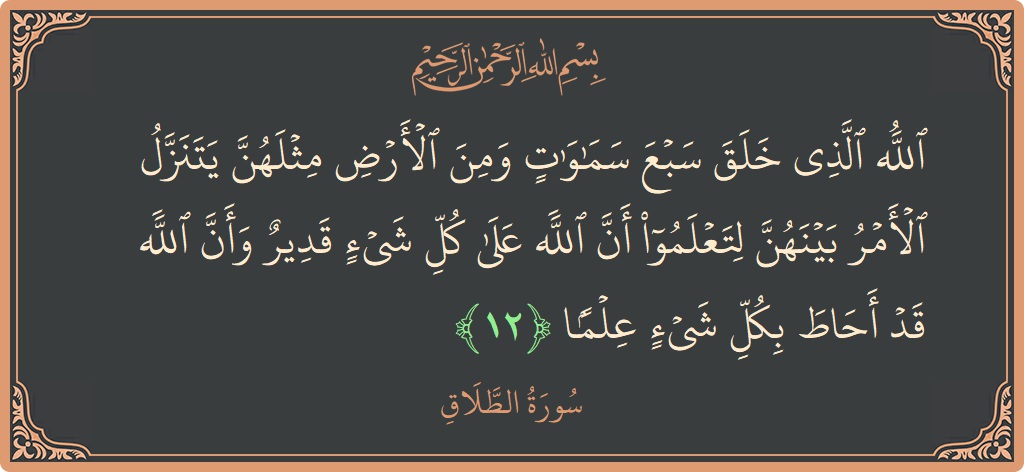 بِسْمِ اللهِ الرَّحْمٰنِ الرَّحِيْمِ
ٱللَّهُ ٱلَّذِى خَلَقَ سَبْعَ سَمَٰوَٰتٍ وَمِنَ ٱلْأَرْضِ مِثْلَهُنَّ يَتَنَزَّلُ
ٱلْأَمْرُ بَيْنَهُنَّ لِتَعْلَمُوٓا۟ أَنَّ ٱللَّهَ عَلَىٰ كُلِّ شَىْءٍ قَدِيرٌ وَأَنَّ ٱللَّهَ
قَدْ أَحَاطَ بِكُلِّ شَىْءٍ عِلْمًۢا ﴿١٢﴾
سُورَةُ الطَّلَاقِ